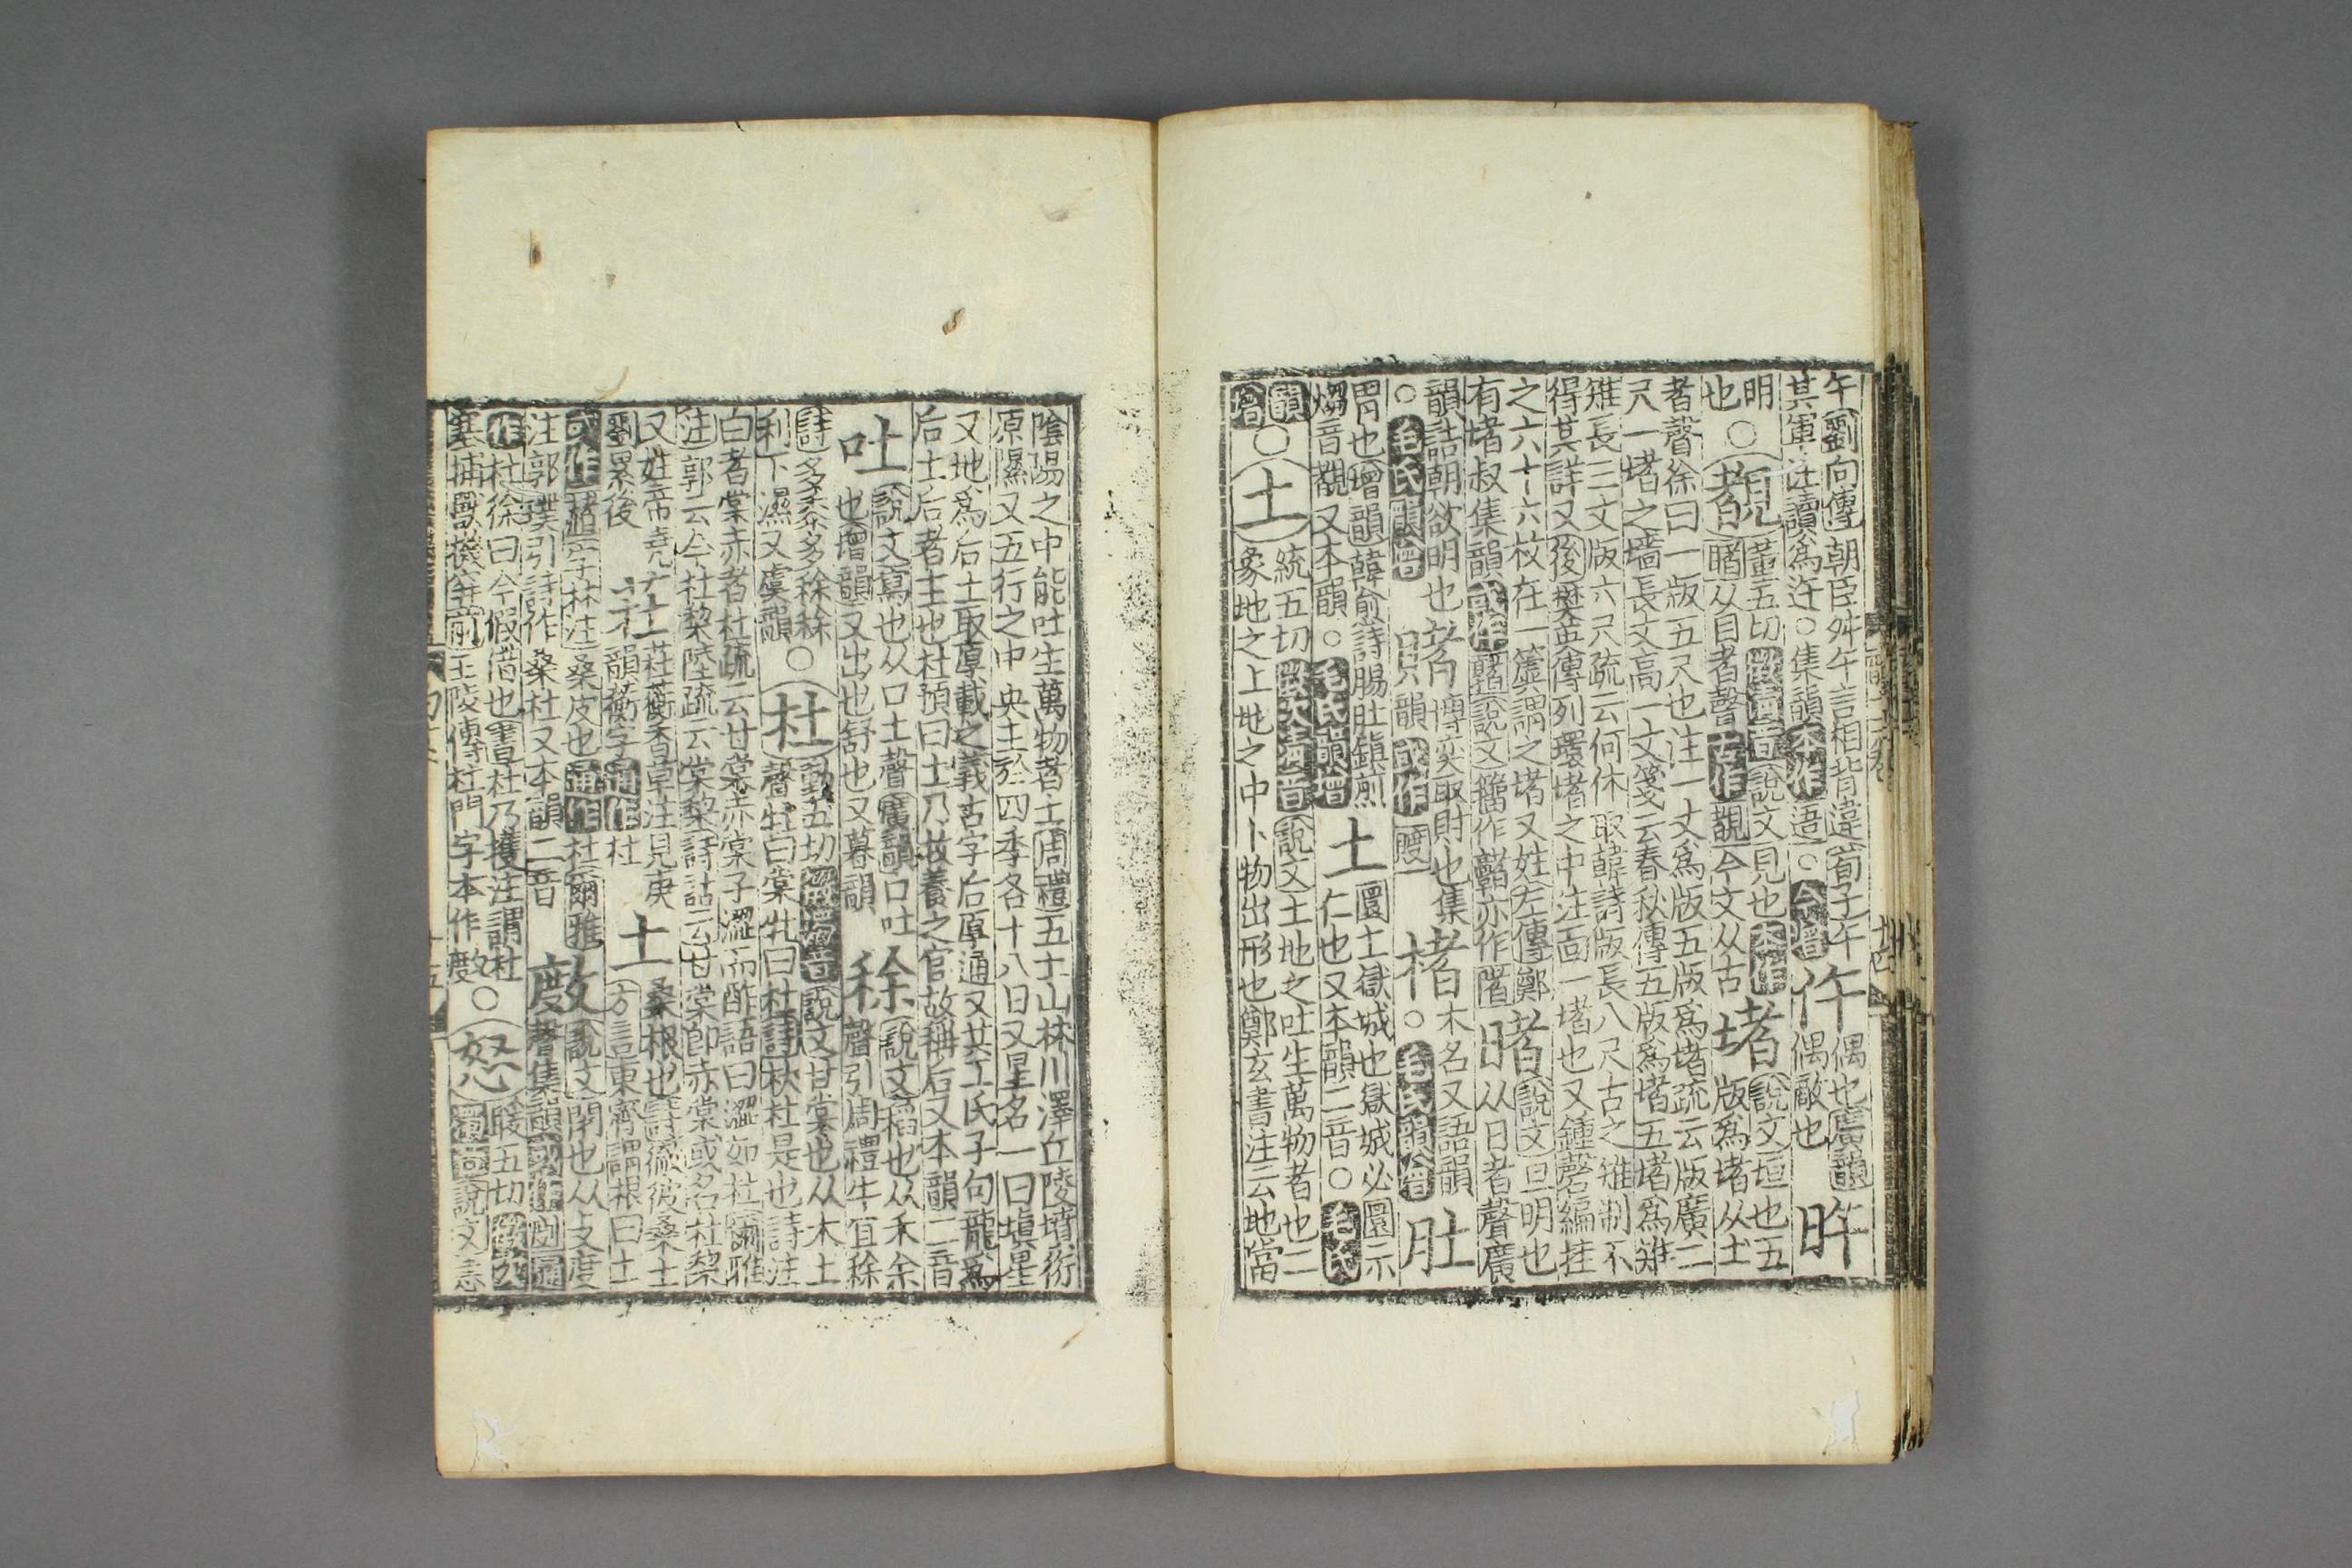 午劉向傳朝臣舛午言相背違荀子午
其軍注讀爲迕○集韻本作○今增
仵
偶也廣韻
偶敵也
旿
明
也
○
覩
董五切徵清音說文見也本作
睹从目者聲古作覩今文从古
堵
說文垣也五
版爲堵从土
者聲徐曰一版五尺也注一丈爲版五版爲堵疏云版廣二
尺一堵之墻長丈高一丈箋云春秋傳五版爲堵五堵爲雉
雉長三丈版六尺疏云何休取韓詩版長八尺古之雉制不
得其詳又後樊英傳列環堵之中注面一堵也又鍾磬編挂
之六十六枚在一簴謂之堵又姓左傳鄭
有堵叔集韻或作說文籀作亦作闍
暏
說文旦明也
从日者聲廣
韻詰朝欲明也
○毛氏韻增
賭
博奕取財也集
韻或作
楮
木名又語韻
○毛氏韻增
肚
胃也增韻韓愈詩腸肚鎮煎
煼音覩又本韻○毛氏韻增
土
圜土獄城也獄城必圜示
仁也又本韻二音○毛氏
韻
增
○
土
統五切徵次清音說文土地之吐生萬物者也二
象地之上地之中丨物出形也鄭玄書注云地當
陰陽之中能吐生萬物者土周禮五土山林川澤丘陵墳衍
原濕又五行之中央土於四季各十八日又星名一曰塡星
又地爲后土取厚載之義古字后厚通又共工氏子句龍爲
后土后者主也杜預曰土乃牧養之官故稱后又本韻二音
吐
說文寫也从口土聲廣韻口吐
也增韻又出也舒也又暮韻
稌
說文稻也从禾余
聲引周禮牛宜稌
詩多黍多稌稌
利下濕又虞韻
○
杜
動五切徵濁音說文甘棠也从木土
聲牡曰棠牝曰杜詩杕杜是也詩注
白者棠赤者杜疏云甘棠赤棠子澀而酢語曰澀如杜爾雅
注郭云今杜棃陸疏云棠棃詩詁云甘棠即赤棠或名杜棃
又姓帝堯
劉累後
荰
荰蘅香草注見庚
韻蘅字通作杜
土
桑根也詩徹彼桑土
方言東齊謂根曰土
或作字林注桑皮也通作杜爾雅
注郭璞引詩作桑杜又本韻二音
㪇
說文閉也从攴度
聲集韻或作剫通
作杜徐曰今假借也書杜乃擭注謂杜
塞捕獸機穽前王陵傳杜門字本作㪇
○
怒
暖五切徵次
濁音說文恚